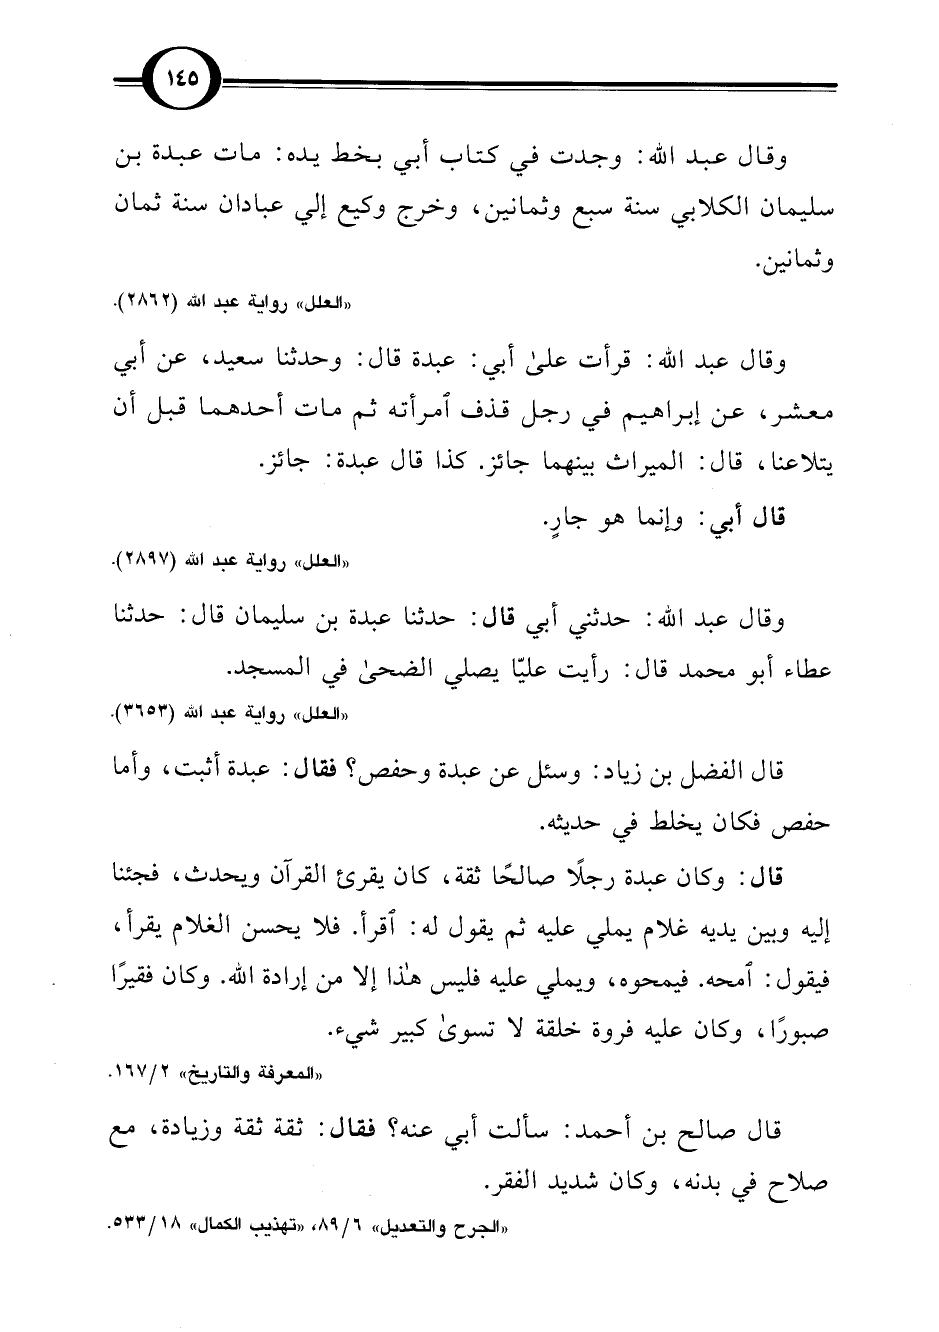 ١٤٥
وقال عبد الله: وجدت في كتاب أبي بخط يده: مات عبدة بن
سليمان الكلابي سنة سبع وثمانين، وخرج وكيع إلي عبادان سنة ثمان
وثمانين.
«العلل» رواية عبد الله (٢٨٦٢).
وقال عبد الله: قرأت علىٰ أبي: عبدة قال: وحدثنا سعيد، عن أبي
معشر، عن إبراهيم في رجل قذف ٱمرأته ثم مات أحدهما قبل أن
يتلاعنا، قال: الميراث بينهما جائز. كذا قال عبدة: جائز.
قال أبي: وإنما هو جارٍ.
«العلل» رواية عبد الله (٢٨٩٧).
وقال عبد الله: حدثني أبي قال: حدثنا عبدة بن سليمان قال: حدثنا
عطاء أبو محمد قال: رأيت عليًّا يصلي الضحىٰ في المسجد.
«العلل» رواية عبد الله (٣٦٥٣).
قال الفضل بن زياد: وسئل عن عبدة وحفص؟ فقال: عبدة أثبت، وأما
حفص فكان يخلط في حديثه.
قال: وكان عبدة رجلًا صالحًا ثقة، كان يقرئ القرآن ويحدث، فجئنا
إليه وبين يديه غلام يملي عليه ثم يقول له: ٱقرأ. فلا يحسن الغلام يقرأ،
فيقول: ٱمحه. فيمحوه، ويملي عليه فليس هٰذا إلا من إرادة الله. وكان فقيرًا
صبورًا، وكان عليه فروة خلقة لا تسوىٰ كبير شيء.
«المعرفة والتاريخ» ٢/ ١٦٧.
قال صالح بن أحمد: سألت أبي عنه؟ فقال: ثقة ثقة وزيادة، مع
صلاح في بدنه، وكان شديد الفقر.
«الجرح والتعديل» ٦/ ٨٩، «تهذيب الكمال» ١٨/ ٥٣٣.